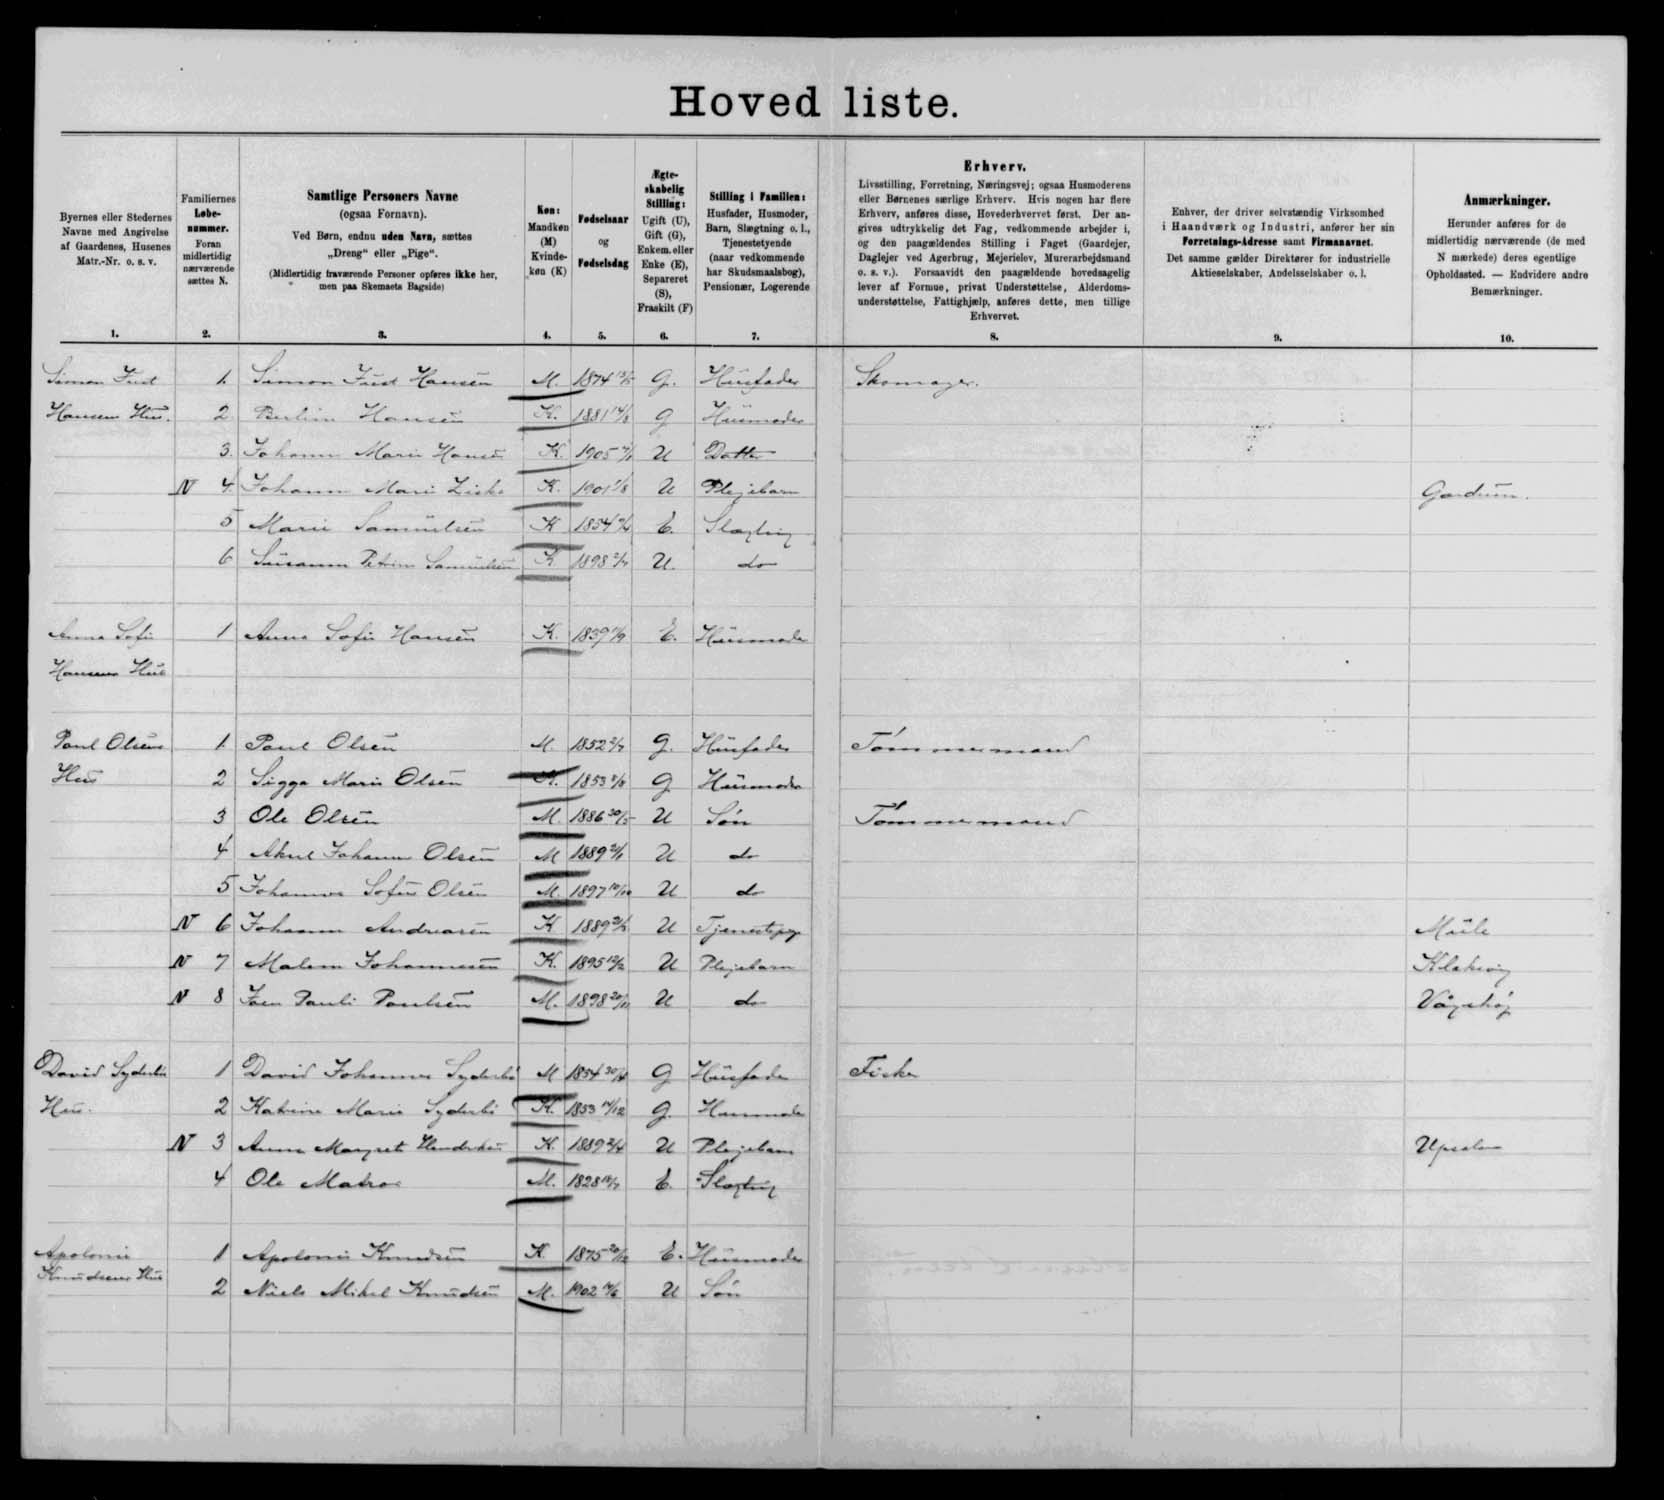 Hovedliste.
Byernes eller Stedernes
Navne med Angivelse
af Gaardenes, Husenes
Matr.-Nr. o. s. v.
1.
Familiernes
Løbe-
nummer.
Foran
midlertidig
nærværende
sættes N.
2.
Samtlige Personers Navne
(ogsaa Fornavn).
Ved Børn, endnu uden Navn, sættes
„Dreng“ eller „Pige“.
(Midlertidig fraværende Personer opføres ikke her,
men paa Skemaets Bagside)
3.
Køn:
Mandkøn
(M)
Kvinde-
køn (K)
4.
Fødselsaar
og
Fødselsdag
5.
Ægte-
skabelig
Stilling:
Ugift (U),
Gift (G),
Enkem. eller
Enke (E),
Separeret
(S),
Fraskilt (F)
6.
Stilling i Familien:
Husfader, Husmoder,
Barn, Slægtning o. l.,
Tjenestetyende
(naar vedkommende
har Skudsmaalsbog),
Pensionær, Logerende
7.
Erhverv.
Livsstilling, Forretning, Næringsvej; ogsaa Husmoderens
eller Børnenes særlige Erhverv. Hvis nogen har flere
Erhverv, anføres disse, Hovederhvervet først. Der an-
gives udtrykkelig det Fag, vedkommende arbejder i,
og den paagældendes Stilling i Faget (Gaardejer,
Daglejer ved Agerbrug, Mejerielev, Murerarbejdsmand
o. s. v.). Forsaavidt den paagældende hovedsagelig
lever af Formue, privat Understøttelse, Alderdoms-
understøttelse, Fattighjælp, anføres dette, men tillige
Erhvervet.
8.
Enhver, der driver selvstændig Virksomhed
i Haandværk og Industri, anfører her sin
Forretnings-Adresse samt Firmanavnet.
Det samme gælder Direktører for industrielle
Aktieselskaber, Andelsselskaber o. l.
9.
Anmærkninger.
Herunder anføres for de
midlertidig nærværende (de med
N mærkede) deres egentlige
Opholdssted. — Endvidere andre
Bemærkninger.
10.
Simon Just 1. Simon Just Hansen M. 1874 G. Husfader Skomager.
Hansens Hus. 2 Hansen K. 1881 G Husmoder
3. Johanne Marie Hansen K. 1905 U Datter
N 4. Johanne Marie K. 1901 U Plejebarn
5 Marie Samuelsen K 1854 E. Slægtning
6 Susanne Petrine Samuelsen K 1898 U. do
Anna Sofie 1 Anna Sofie Hansen K. 1839 E. Husmoder
Hansens Hus
Poul Olsens 1. Poul Olsen M. 1852 G. Husfader Tómmermand
Hus 2 Sigga Marie Olsen K. 1853 G Husmoder
3 Ole Olsen M. 1886 U Són Tómmermand
4 Johannes Olsen M 1889 U do
5 Johannes Sofus Olsen M. 1897 U do
N 6 Johanne Andreasen K 1889 U Tjenestepige Múle
N 7 Malene Johannesen K. 1895 U Plejebarn Klaksvig
N 8 Joen Pauli Poulsen M. 1898 U do
David 1 David Johannes M 1854 G Husfader Fisker
Hus. 2 Katrine Marie K. 1853 G. Husmoder
N 3 Anna Margret K. 1889 U Plejebarn
4 Ole M. 1828 E. Slægtning
Apolonie 1 Apolonie Knudsen K 1875 E. Husmoder
Knudsens Hus 2 Niels Mikel Knudsen M. 1902 U Són